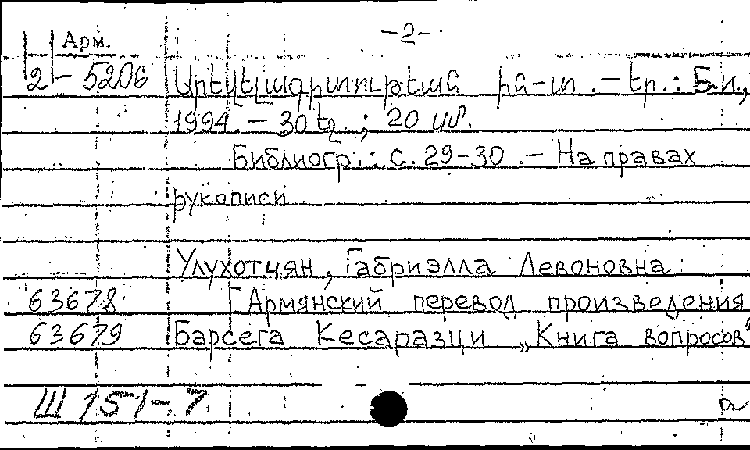 Арм. -2-
2-5206 Արևելագիտության ին-տ. - Եր.: Б.и.,
1994. - 30 էջ.; 20 սմ.
Библиогр.: с. 29-30. - На правах
рукописи
Улухотцян, Габриэлла Левоновна.
63678 [Армянский перевод произведения
63679 Барсега Кесарацци „Книга вопросов“
Ш 151-7